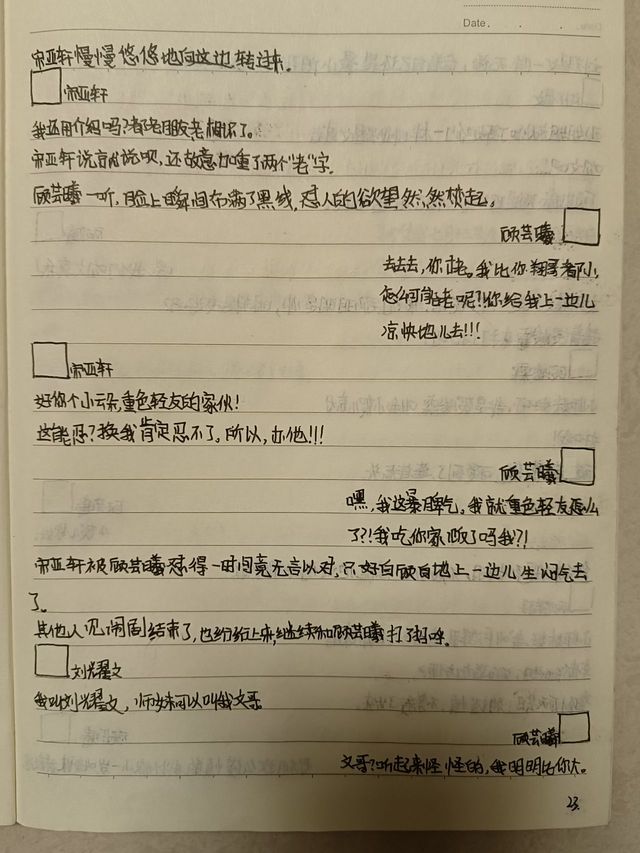 Date.
宋亚轩慢慢悠悠地向这边转过来.
宋亚轩
我还用介绍吗?都老朋友老相识了。
宋亚轩说就说呗,还故意加重了两个"老"字.
顾芸曦一听,脸上瞬间布满了黑线,怼人的欲望熊熊燃起。
顾芸曦
去去去,你才老。我比你翔哥都小,
怎么可能老呢?你给我上一边儿
凉快地儿去!!!
宋亚轩
好你个小云朵,重色轻友的家伙!
这能忍?换我肯定忍不了。所以,怼他!!!
顾芸曦
嘿,我这暴脾气。我就重色轻友怎么
了?!我吃你家饭了吗我?!
宋亚轩被顾芸曦怼得一时间竟无言以对,只好自顾自地上一边儿生闷气去
了。
其他人见闹剧结束了,也纷纷上来,继续和顾芸曦打了招呼.
刘耀文
我叫刘耀文,师妹可以叫我文哥
顾芸曦
文哥?听起来怪怪的,我明明比你大。
23.